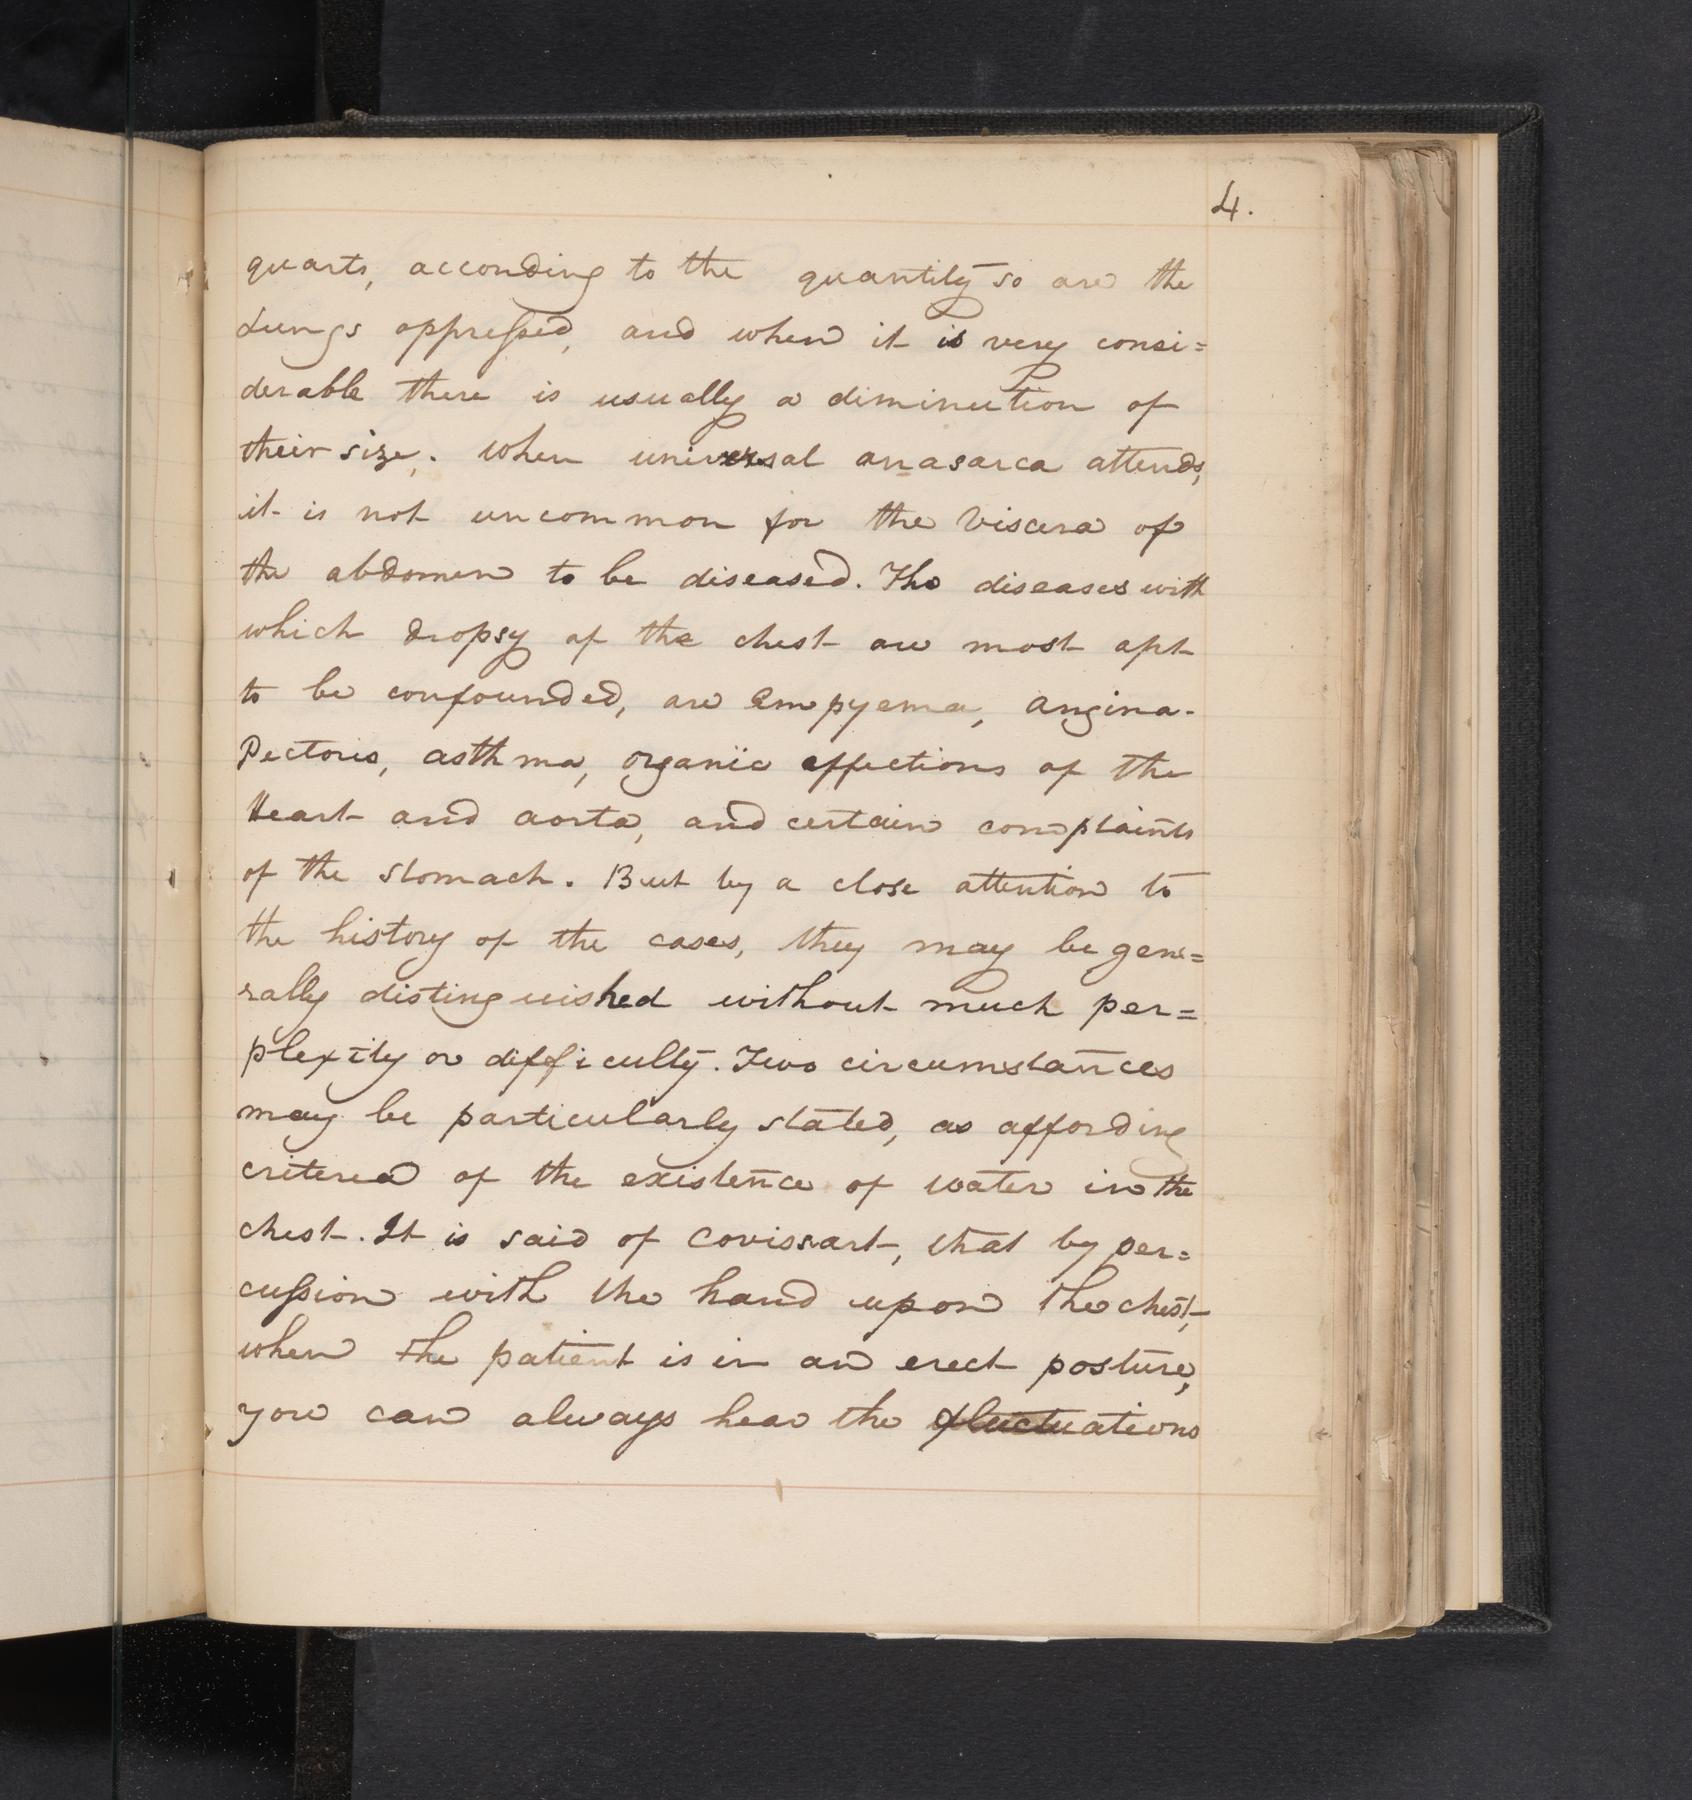 4.
quarts, according to the quantity so are the
Lungs oppressed, and when it is very consi=
derable there is usually a diminution of
their size. When universal anasarca attends,
it is not uncommon for the Viscera of
the abdomen to be diseased. The diseases with
which dropsy of the chest are most apt
to be confounded, are Empyema, angina-
Pectoris, asthma, organic affections of the
Heart and aorta, and certain complaints
of the stomach. But by a close attention to
the history of the cases, they may be gene=
rally distinguished without much per=
plexity or difficulty. Two circumstances
may be particularly stated, as affording
criterea of the existence of water in the
chest. It is said of Corissart, that by per=
cussion with the hand upon the chest,
when the patient is in an erect posture,
you can always hear the fluctuations